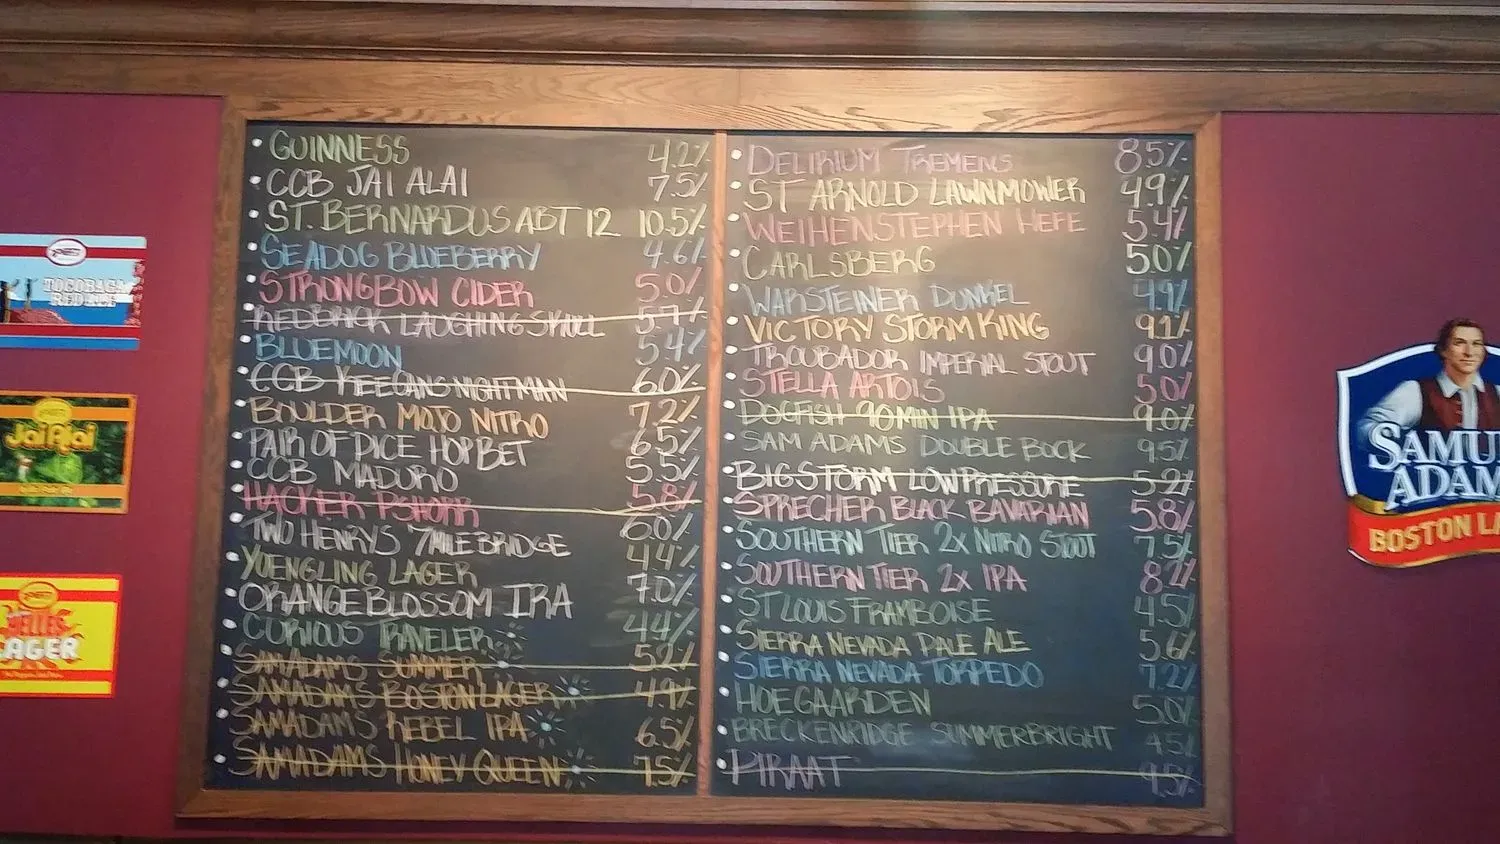 TOCOBAGA
RED ALE
Jai Alai
HELLES
LAGER
GUINNESS 4.2%
CCB JAI ALAI 7.5%
ST. BERNARDUS ABT 12 10.5%
SEADOG BLUEBERRY 4.6%
STRONGBOW CIDER 5.0%
REDBRICK LAUGHING SKULL 5.7%
BLUEMOON 5.4%
CCB KEEGANS NIGHTMAN 6.0%
BOULDER MOJO NITRO 7.2%
PAIR OF DICE HOP BET 6.5%
CCB MADURO 5.5%
HACKER PSHORR 5.8%
TWO HENRYS 7MILE BRIDGE 6.0%
YUENGLING LAGER 4.4%
ORANGE BLOSSOM IRA 7.0%
CURIOUS TRAVELER 4.4%
SAMADAMS SUMMER 5.2%
SAMADAMS BOSTON LAGER 4.9%
SAMADAMS REBEL IPA 6.5%
SAMADAMS HONEY QUEEN 7.5%
DELIRIUM TREMENS 8.5%
ST ARNOLD LAWNMOWER 4.9%
WEIHENSTEPHEN HEFE 5.4%
CARLSBERG 5.0%
WARSTEINER DUNKEL 4.9%
VICTORY STORM KING 9.1%
TROUBADOR IMPERIAL STOUT 9.0%
STELLA ARTOIS 5.0%
DOGFISH 90MIN IPA 9.0%
SAM ADAMS DOUBLE BOCK 9.5%
BIG STORM LOW PRESSURE 5.2%
SPRECHER BLACK BAVARIAN 5.8%
SOUTHERN TIER 2X NITRO STOUT 7.5%
SOUTHERN TIER 2X IPA 8.2%
ST LOUIS FRAMBOISE 4.5%
SIERRA NEVADA PALE ALE 5.6%
SIERRA NEVADA TORPEDO 7.2%
HOEGAARDEN 5.0%
BRECKENRIDGE SUMMERBRIGHT 4.5%
PIRAAT 9.5%
SAMU
ADAM
BOSTON LA